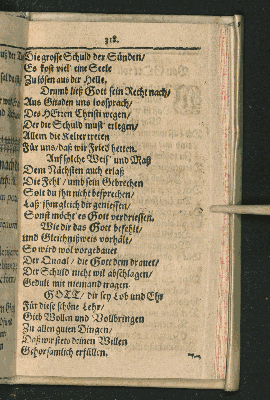 318.
Die grosse Schuld der Sünden/
Es kost viel' eine Seele
Zu lösen aus der Helle,
Drumb ließ Gott sein Recht nach/
Aus Gnaden uns lossprach/
Des HErren Christi wegen/
Der die Schuld must erlegen/
Allein die Kelter treten
Für uns/daß wir Fried hetten.
Auf solche Weis' und Maß
Dem Nächsten auch erlaß
Die Fehl'/ und sein Gebrechen
Solt du ihn nicht besprechen/
Laß ihm gleich dir geniessen/
Sonst möcht' es Gott verdriessen.
Wie dir das Gott befehlt/
und Gleichnißweis vorhält/
So wird wol vorgebauet
Der Quaal/ die Gott dem drauet/
Der Schuld nicht wil abschlagen/
Gedult mit niemand tragen.
GOTT/ dir sey Lob und Ehr
Für diese schöne Lehr/
Gieb Wollen und Vollbringen
Zu allen guten Dingen/
Daß wir stets deinen Willen
Gehorsamlich erfüllen.